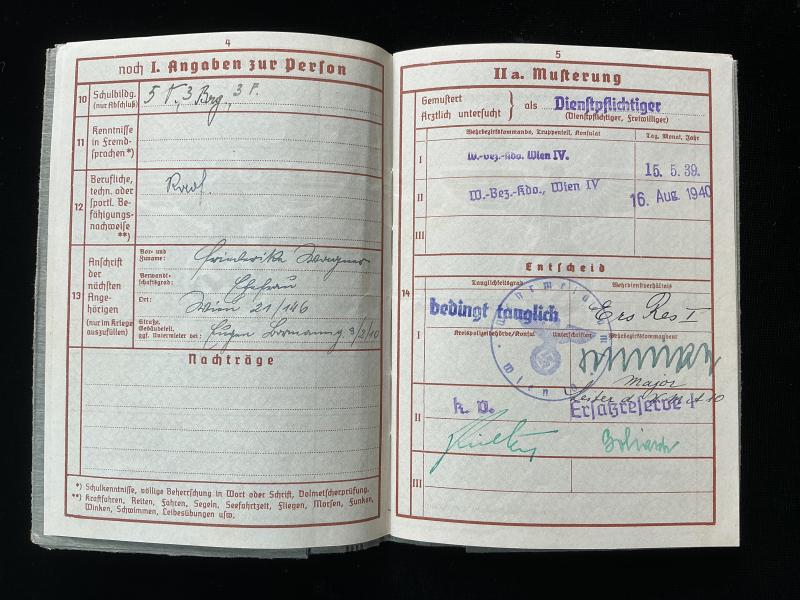 4
noch I. Angaben zur Person
10 Schulbildg.
(nur Abschluß)
5 V, 3 Brg., 3 F.
11 Kenntnisse
in Fremd-
sprachen *)
12 Berufliche,
techn. oder
sportl. Be-
fähigungs-
nachweise
**)
13 Anschrift
der
nächsten
Ange-
hörigen
(nur im Kriege
auszufüllen)
Vor- und
Zuname:
Friederike Wagner
Verwandt-
schaftsgrad:
Ehefrau
Ort:
Wien 21/146
Straße,
Gebäudeteil,
ggf. Untermieter bei:
Eugen Bormanng 8/2/10
Nachträge
*) Schulkenntnisse, völlige Beherrschung in Wort oder Schrift, Dolmetscherprüfung.
**) Kraftfahren, Reiten, Fahren, Segeln, Seefahrtzeit, Fliegen, Morsen, Funken,
Winken, Schwimmen, Leibesübungen usw.
5
II a. Musterung
Gemustert
Ärztlich untersucht } als Dienstpflichtiger
(Dienstpflichtiger, Freiwilliger)
Wehrbezirkskommando, Truppenteil, Konsulat
Tag, Monat, Jahr
I W.-Bez.-Kdo. Wien IV. 15. 5. 39.
II W.-Bez.-Kdo., Wien IV 16. Aug. 1940
III
Entscheid
14
Tauglichkeitsgrad
Wehrdienstverhältnis
bedingt tauglich Ers Res I
Kreispolizeibehörde/Konsul
Unterschriften
Wehrbezirkskommandeur
I
Major
Leiter d.
II k. v. Ersatzreserve I
III